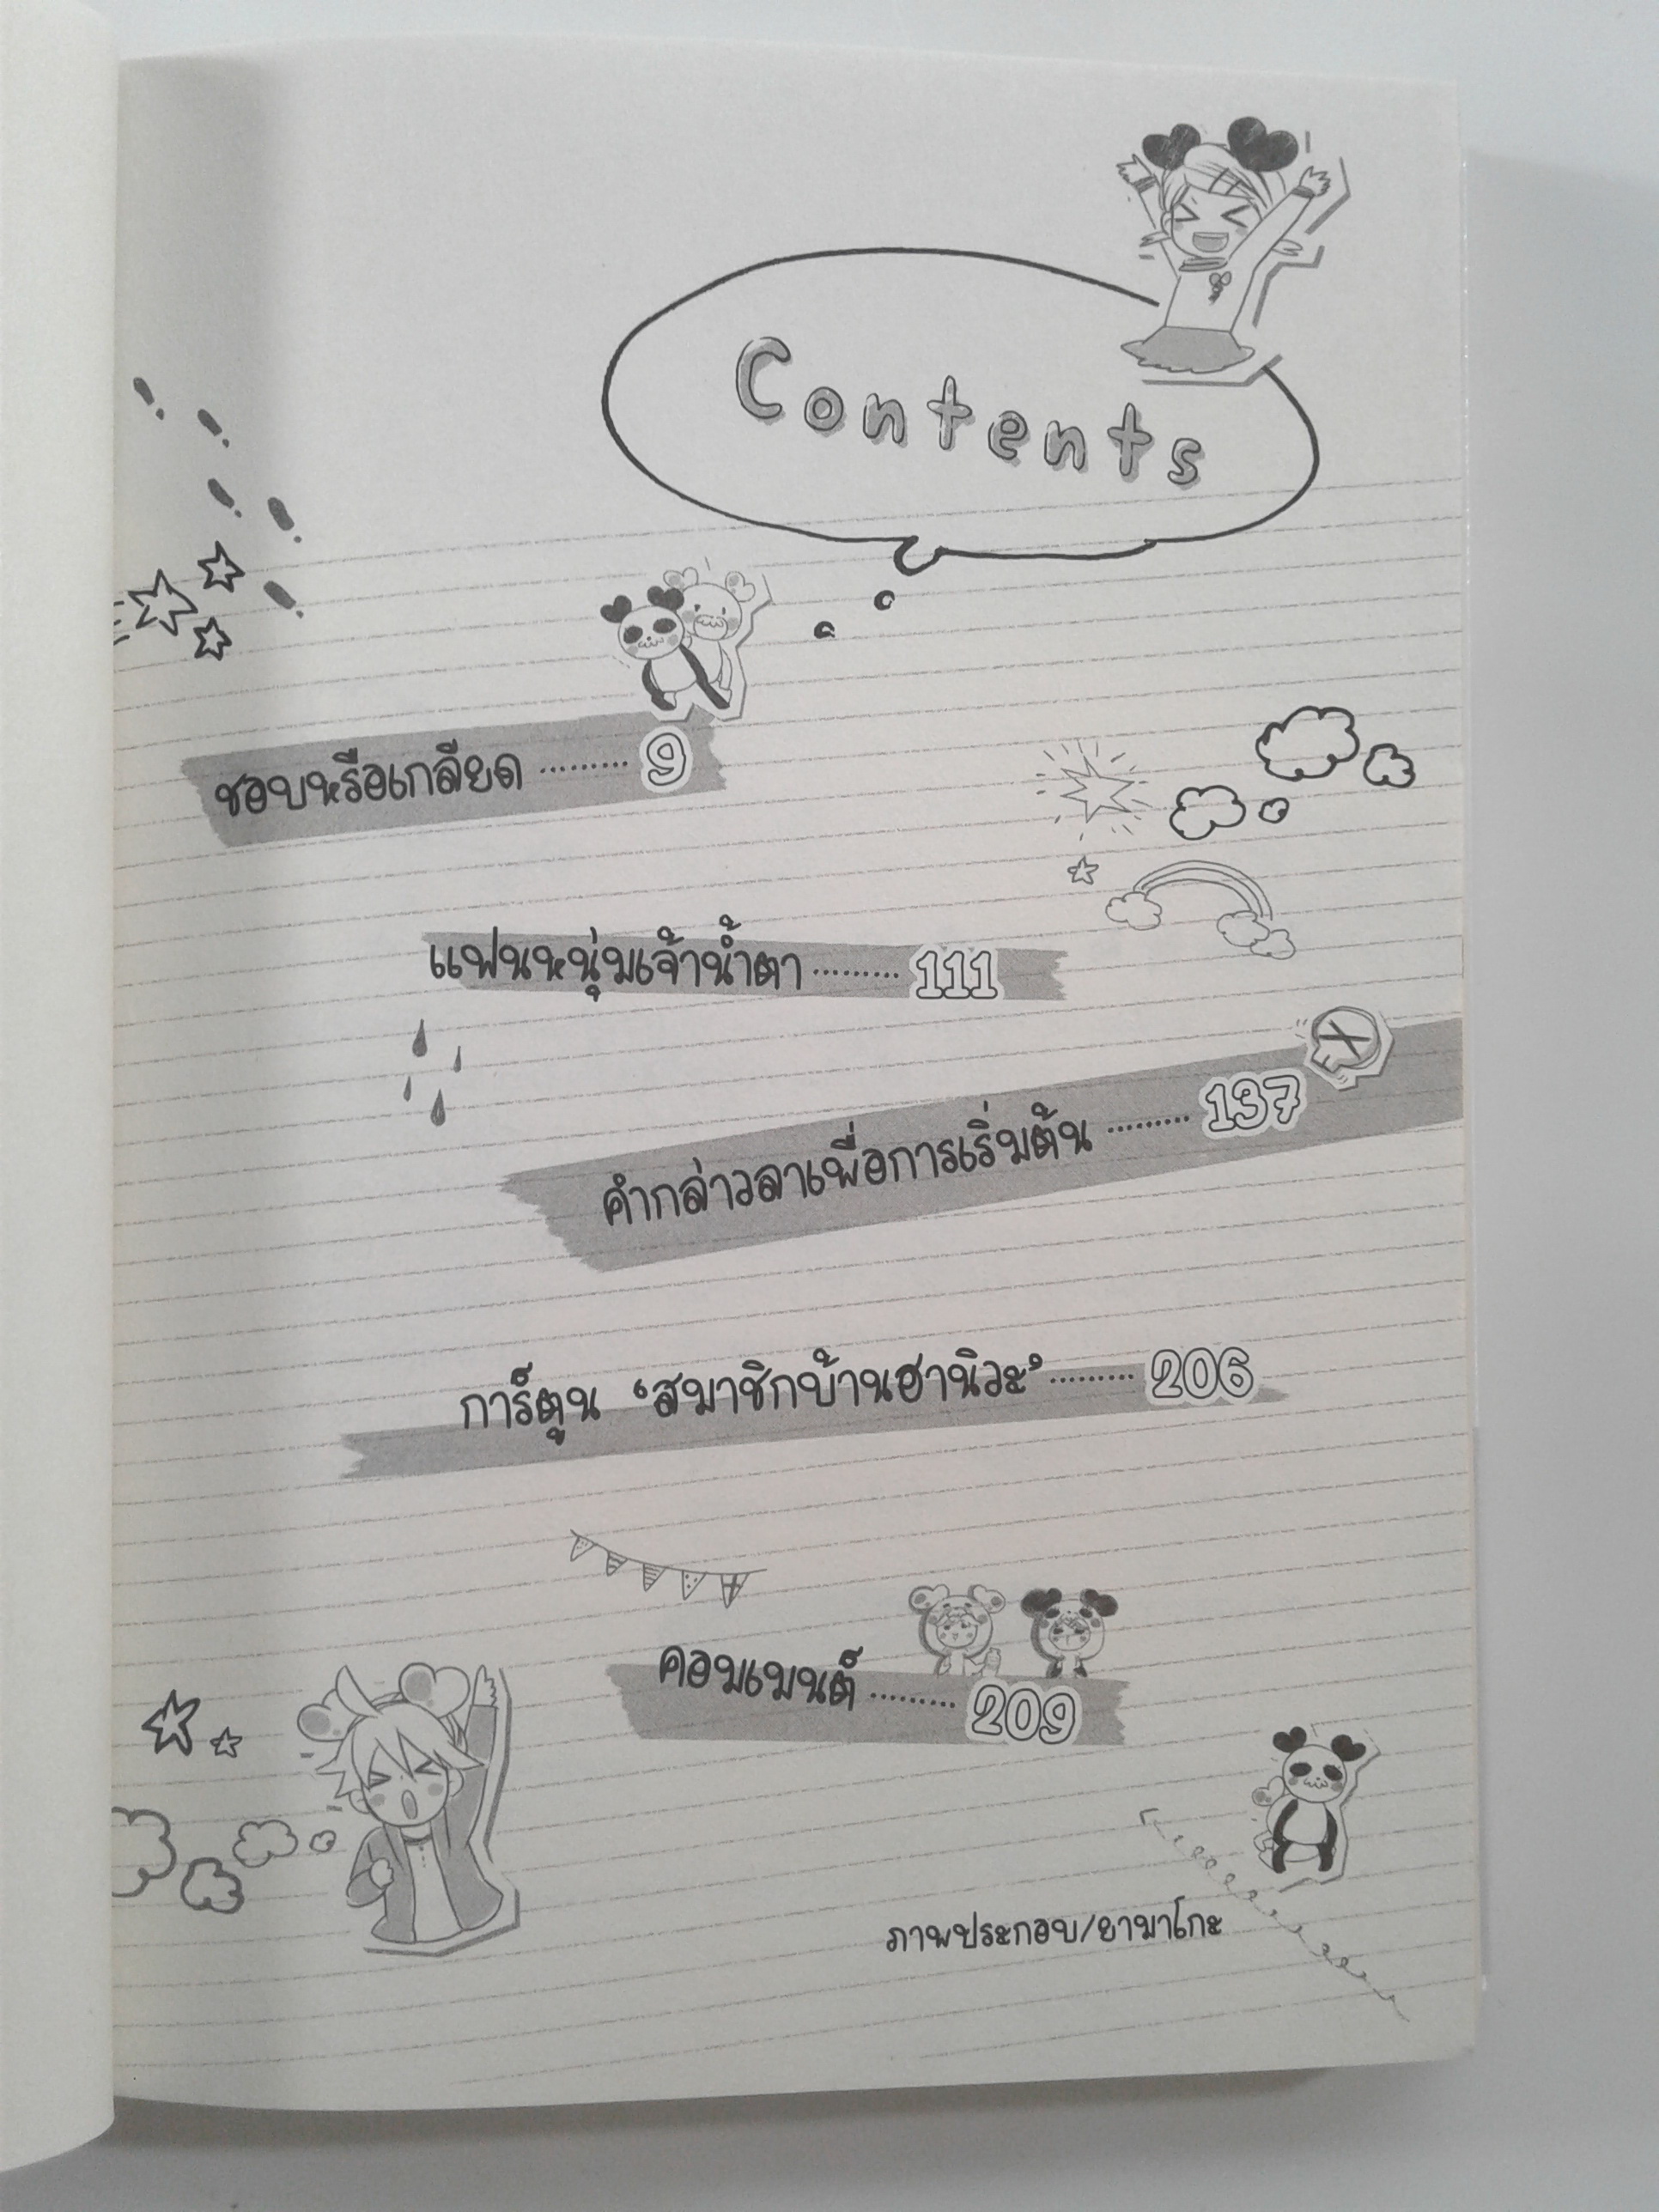 Contents
ชอบหรือเกลียด ......... 9
แฟนหนุ่มเจ้าน้ำตา ......... 111
คำกล่าวลาเพื่อการเริ่มต้น ......... 137
การ์ตูน ‘สมาชิกบ้านฮานิวะ’ ......... 206
คอมเมนต์ ......... 209
ภาพประกอบ/ยามาโกะ